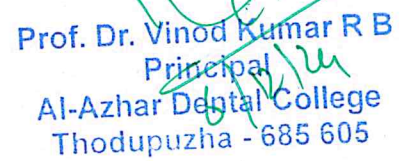 Prof. Dr. Vinod Kumar R B
Principal
6/12/24
Al-Azhar Dental College
Thodupuzha - 685 605